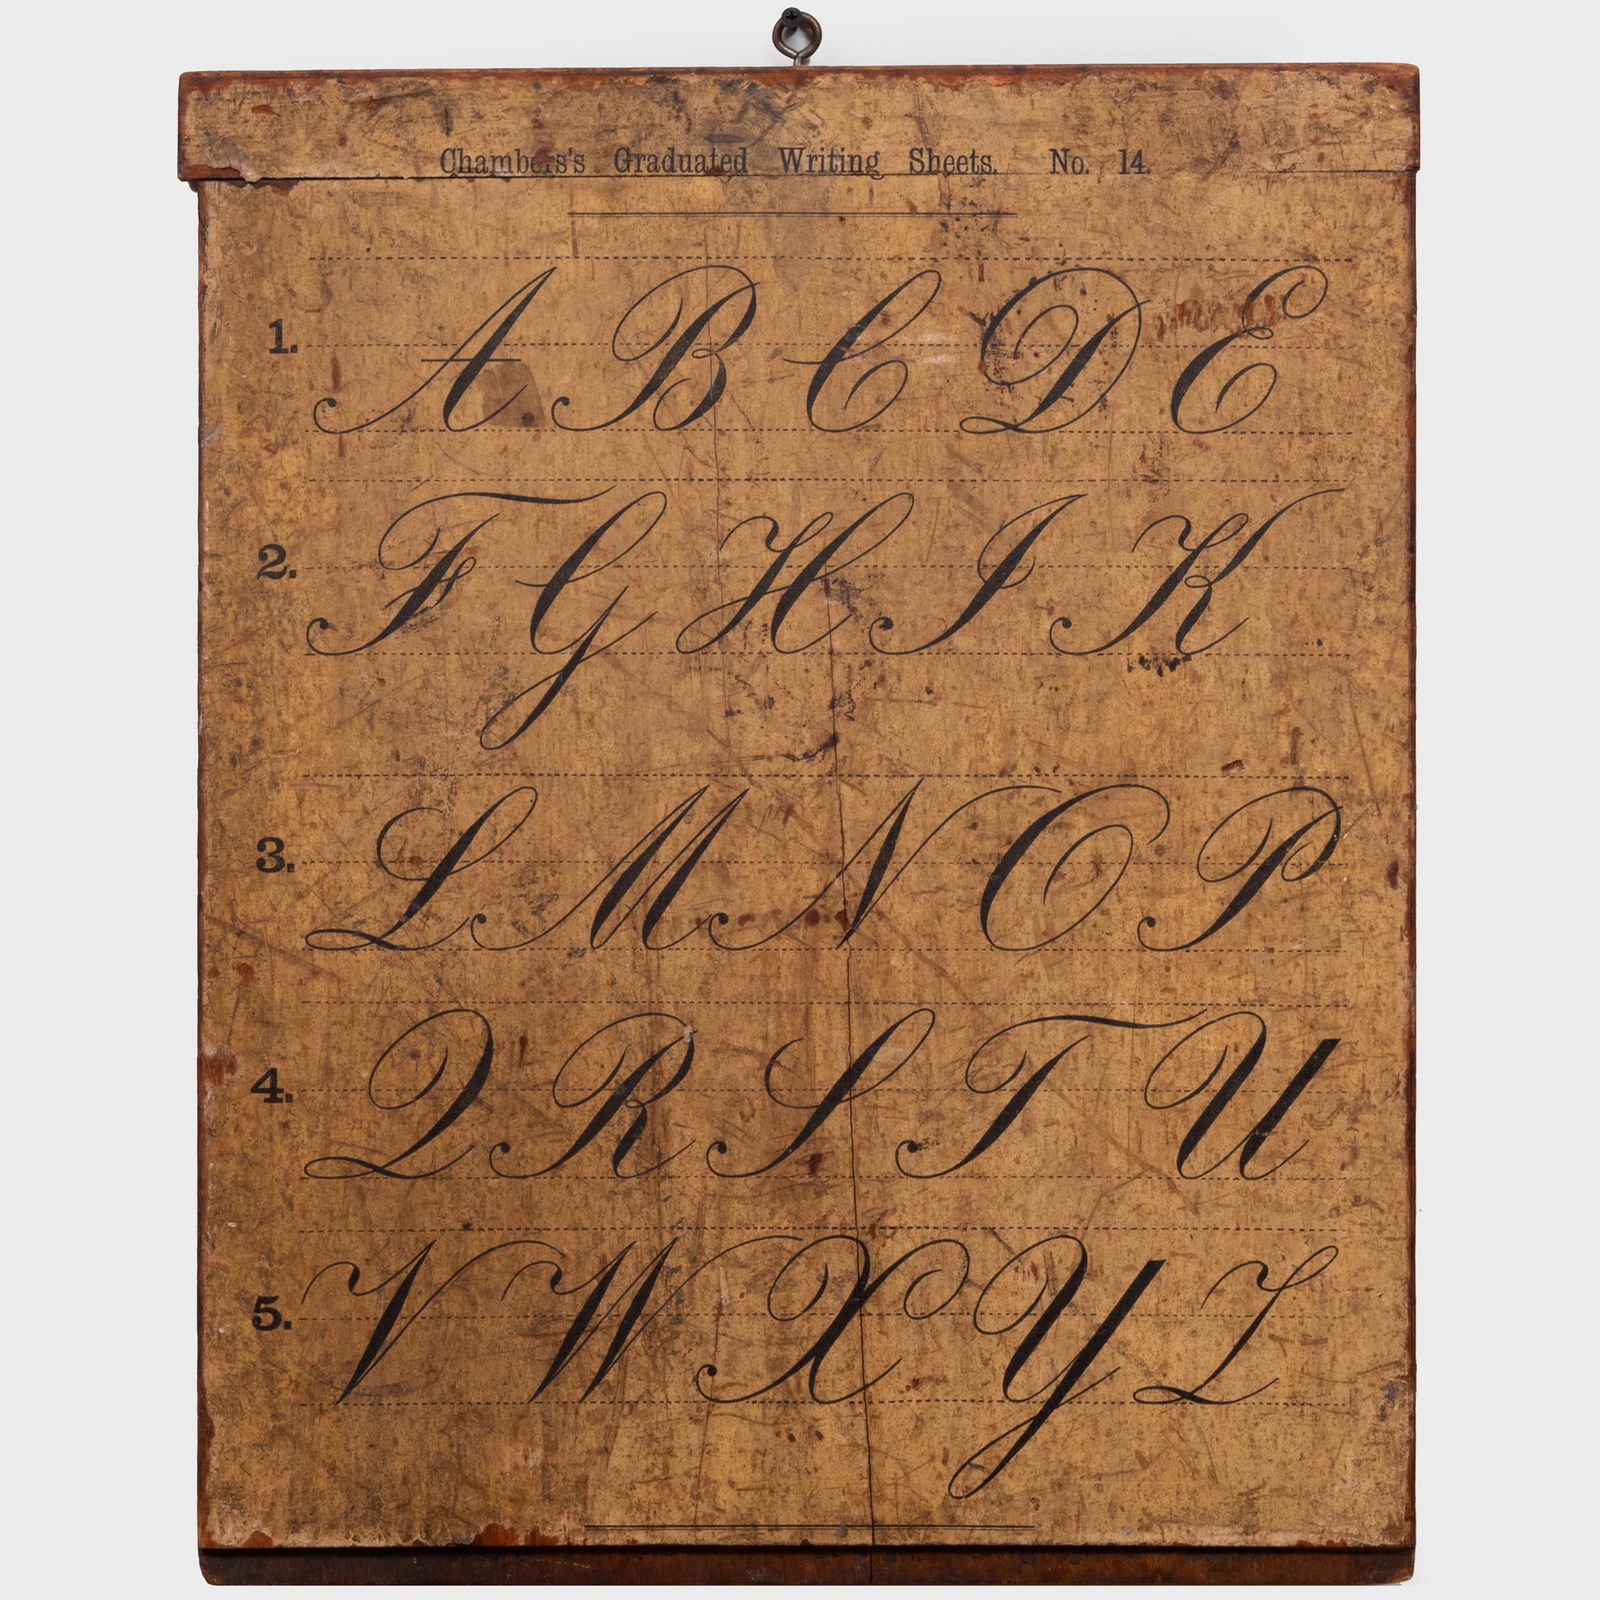 Chambers's Graduated Writing Sheets. No. 14.
1. A B C D E
2. F G H I K
3. L M N O P
4. Q R S T U
5. V W X Y Z